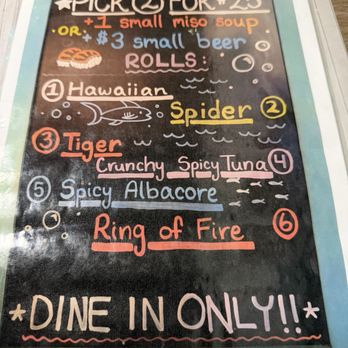 *PICK (2) FOR $23
+1 small miso soup
OR
+$3 small beer
ROLLS:
① Hawaiian
Spider ②
③ Tiger
Crunchy Spicy Tuna ④
⑤ Spicy Albacore
Ring of Fire ⑥
*DINE IN ONLY!!*